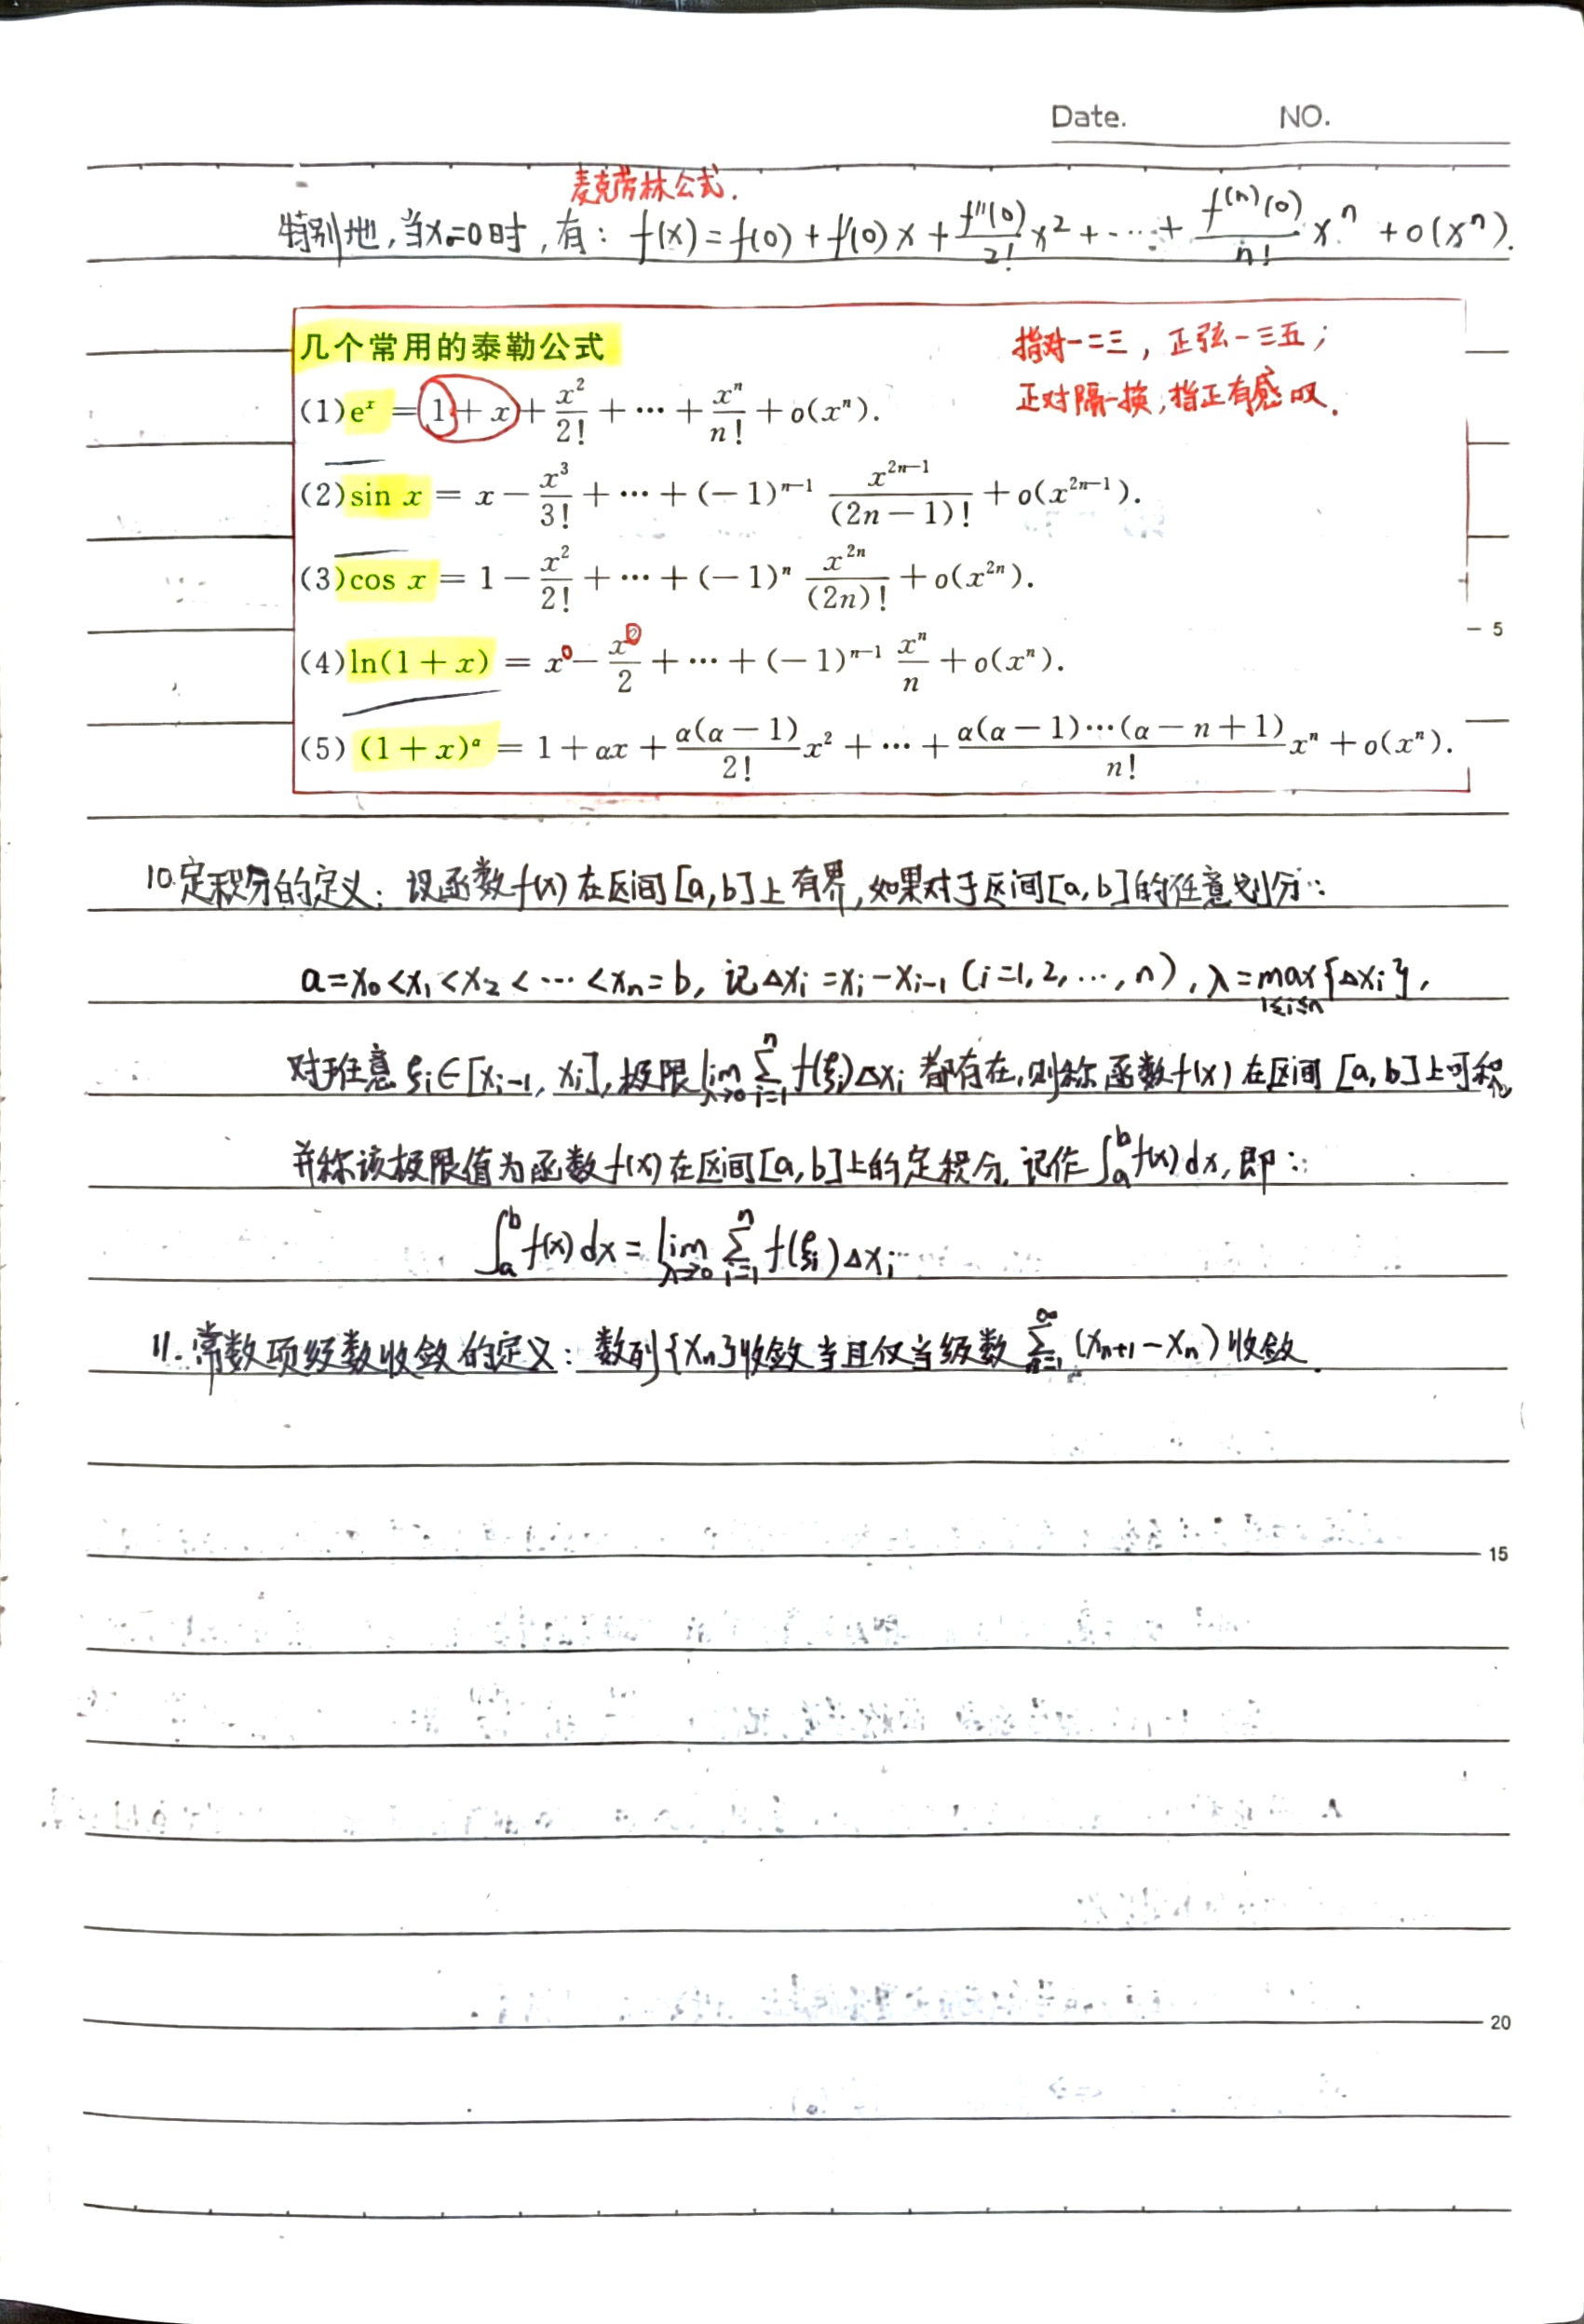 Date. NO.
麦克劳林公式.
特别地,当x₀=0时,有: f(x)=f(0)+f'(0)x+\frac{f''(0)}{2!}x²+⋯+\frac{f^{(n)}(0)}{n!}xⁿ+o(xⁿ).
几个常用的泰勒公式
指对一二三,正弦一三五;
正对隔一换,指正有感叹.
(1)eˣ=1+x+\frac{x²}{2!}+⋯+\frac{xⁿ}{n!}+o(xⁿ).
(2)sin x=x-\frac{x³}{3!}+⋯+(-1)^{n-1}\frac{x^{2n-1}}{(2n-1)!}+o(x^{2n-1}).
(3)cos x=1-\frac{x²}{2!}+⋯+(-1)ⁿ\frac{x^{2n}}{(2n)!}+o(x^{2n}).
5
(4)ln(1+x)=x-\frac{x²}{2}+⋯+(-1)^{n-1}\frac{xⁿ}{n}+o(xⁿ).
(5)(1+x)^α=1+αx+\frac{α(α-1)}{2!}x²+⋯+\frac{α(α-1)⋯(α-n+1)}{n!}xⁿ+o(xⁿ).
10.定积分的定义:设函数f(x)在区间[a,b]上有界,如果对于区间[a,b]的任意划分:
a=x₀<x₁<x₂<⋯<xₙ=b,记Δxᵢ=xᵢ-xᵢ₋₁(i=1,2,⋯,n),λ=\max_{1≤i≤n}{Δxᵢ},
对于任意ξᵢ∈[xᵢ₋₁,xᵢ],极限\lim_{λ→0}\sum_{i=1}^{n}f(ξᵢ)Δxᵢ都存在,则称函数f(x)在区间[a,b]上可积,
并称该极限值为函数f(x)在区间[a,b]上的定积分,记作\int_a^b f(x)dx,即:
\int_a^b f(x)dx=\lim_{λ→0}\sum_{i=1}^{n}f(ξᵢ)Δxᵢ
11.常数项级数收敛的定义:数列{xₙ}收敛当且仅当级数\sum_{n=1}^{∞}(xₙ₊₁-xₙ)收敛.
15
20